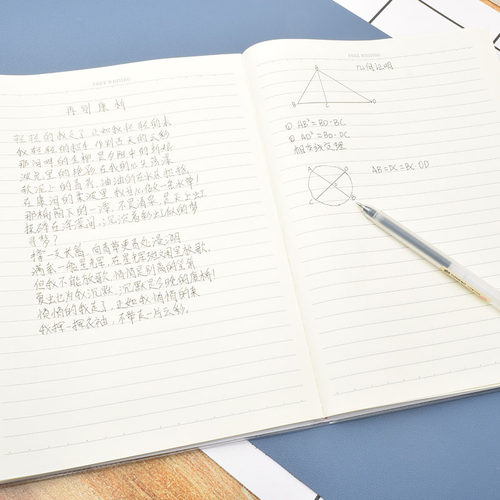 再别康桥
轻轻的我走了 正如我轻轻的来
我轻轻的招手 作别西天的云彩
那河畔的金柳 是夕阳中的新娘
波光里的艳影 在我的心头荡漾
软泥上的青荇 油油的在水底招摇
在康河的柔波里 我甘心做一条水草!
那榆荫下的一潭, 不是清泉, 是天上虹
揉碎在浮藻间, 沉淀着彩虹似的梦
寻梦?
撑一支长篙, 向青草更青处漫溯
满载一船星辉, 在星辉斑斓里放歌.
但我不能放歌, 悄悄是别离的笙箫
夏虫也为我沉默, 沉默是今晚的康桥!
悄悄的我走了, 正如我悄悄的来
我挥一挥衣袖, 不带走一片云彩.
几何证明
A
B C D
① AB²=BD·BC
② AD²=BD·DC
相交弦定理
A D
C B